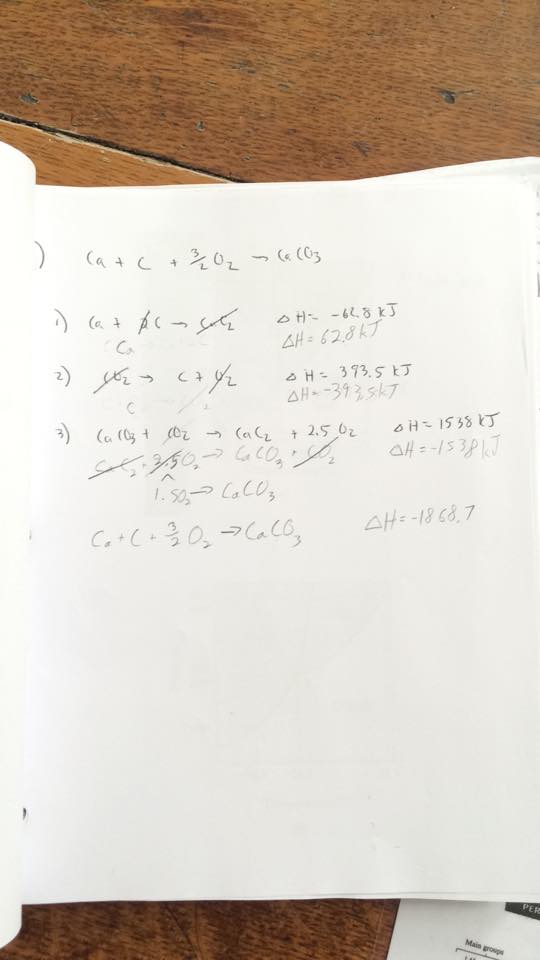 ) Ca + C + 3/2 O2 → CaCO3
1) Ca + 2C → CaC2 ΔH = -62.8 kJ
Ca ΔH = 62.8 kJ
2) CO2 → C + O2 ΔH = 393.5 kJ
C ΔH = -393.5 kJ
3) CaCO3 + CO2 → CaC2 + 2.5 O2 ΔH = 1538 kJ
CaC2 + 2.5 O2 → CaCO3 + CO2 ΔH = -1538 kJ
1.5O2 → CaCO3
Ca + C + 3/2 O2 → CaCO3 ΔH = -1868.7
PER
Main groups